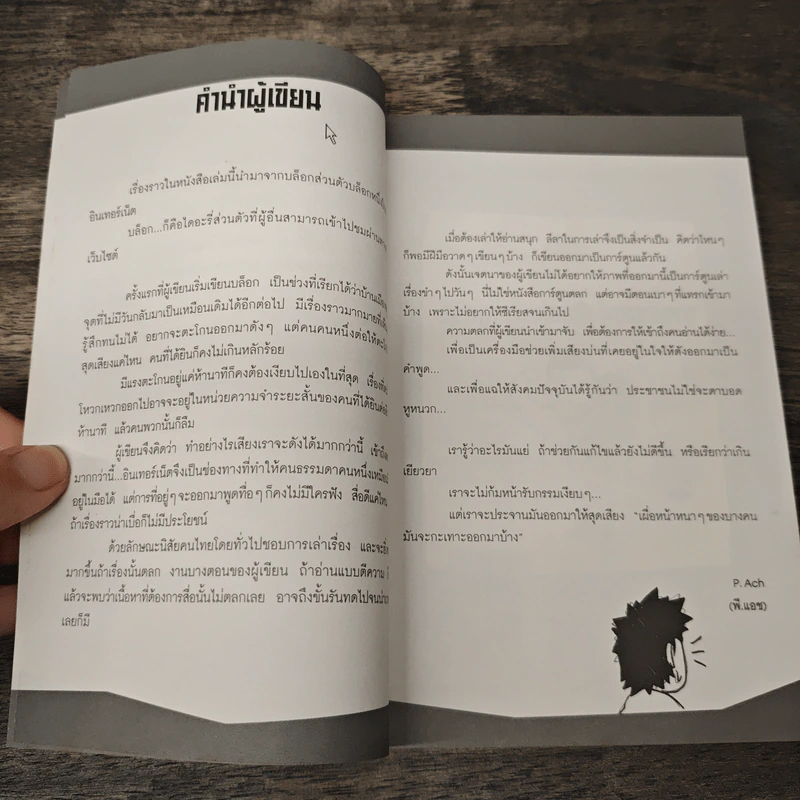 คำนำผู้เขียน
เรื่องราวในหนังสือเล่มนี้นำมาจากบล็อกส่วนตัวบล็อกหนึ่ง
อินเทอร์เน็ต
บล็อก...ก็คือไดอะรี่ส่วนตัวที่ผู้อื่นสามารถเข้าไปชมผ่าน
เว็บไซต์
ครั้งแรกที่ผู้เขียนเริ่มเขียนบล็อก เป็นช่วงที่เรียกได้ว่าบ้านเมือง
จุดที่ไม่มีวันกลับมาเป็นเหมือนเดิมได้อีกต่อไป มีเรื่องราวมากมายที่
รู้สึกทนไม่ได้ อยากจะตะโกนออกมาดังๆ แต่คนคนหนึ่งต่อให้
สุดเสียงแค่ไหน คนที่ได้ยินก็คงไม่เกินหลักร้อย
มีแรงตะโกนอยู่แค่ห้านาทีก็คงต้องเงียบไปเองในที่สุด เรื่องที่
โหวกเหวกออกไปอาจจะอยู่ในหน่วยความจำระยะสั้นของคนที่ได้ยินต่อ
ห้านาที แล้วคนพวกนั้นก็ลืม
ผู้เขียนจึงคิดว่า ทำอย่างไรเสียงเราจะดังได้มากกว่านี้ เข้าถึง
มากกว่านี้...อินเทอร์เน็ตจึงเป็นช่องทางที่ทำให้คนธรรมดาคนหนึ่งเหมือน
อยู่ในมือได้ แต่การที่อยู่ๆ จะออกมาพูดทื่อๆ ก็คงไม่มีใครฟัง สื่อดีแค่ไหน
ถ้าเรื่องราวน่าเบื่อก็ไม่มีประโยชน์
ด้วยลักษณะนิสัยคนไทยโดยทั่วไปชอบการเล่าเรื่อง และจะ
มากขึ้นถ้าเรื่องนั้นตลก งานบางตอนของผู้เขียน ถ้าอ่านแบบตีความ
แล้วจะพบว่าเนื้อหาที่ต้องการสื่อนั้นไม่ตลกเลย อาจถึงขั้นรันทดไปจน
เลยก็มี
เมื่อต้องเล่าให้อ่านสนุก ลีลาในการเล่าจึงเป็นสิ่งจำเป็น คิดว่าไหนๆ
ก็พอมีฝีมือวาดๆ เขียนๆ บ้าง ก็เขียนออกมาเป็นการ์ตูนแล้วกัน
ดังนั้นเจตนาของผู้เขียนไม่ได้อยากให้ภาพที่ออกมานี้เป็นการ์ตูนเล่า
เรื่องขำๆ ไปวันๆ นี่ไม่ใช่หนังสือการ์ตูนตลก แต่อาจมีตอนเบาๆ ที่แทรกเข้ามา
บ้าง เพราะไม่อยากให้ซีเรียสจนเกินไป
ความตลกที่ผู้เขียนนำเข้ามาจับ เพื่อต้องการให้เข้าถึงคนอ่านได้ง่าย...
เพื่อเป็นเครื่องมือช่วยเพิ่มเสียงบ่นที่เคยอยู่ในใจให้ดังออกมาเป็น
คำพูด...
และเพื่อแฉให้สังคมปัจจุบันได้รู้กันว่า ประชาชนไม่ใช่จะตาบอด
หูหนวก...
เรารู้ว่าอะไรมันแย่ ถ้าช่วยกันแก้ไขแล้วยังไม่ดีขึ้น หรือเรียกว่าเกิน
เยียวยา
เราจะไม่ก้มหน้ารับกรรมเงียบๆ...
แต่เราจะประจานมันออกมาให้สุดเสียง "เผื่อหน้าหนาๆ ของบางคน
มันจะกะเทาะออกมาบ้าง"
P. Ach
(พี.แอช)